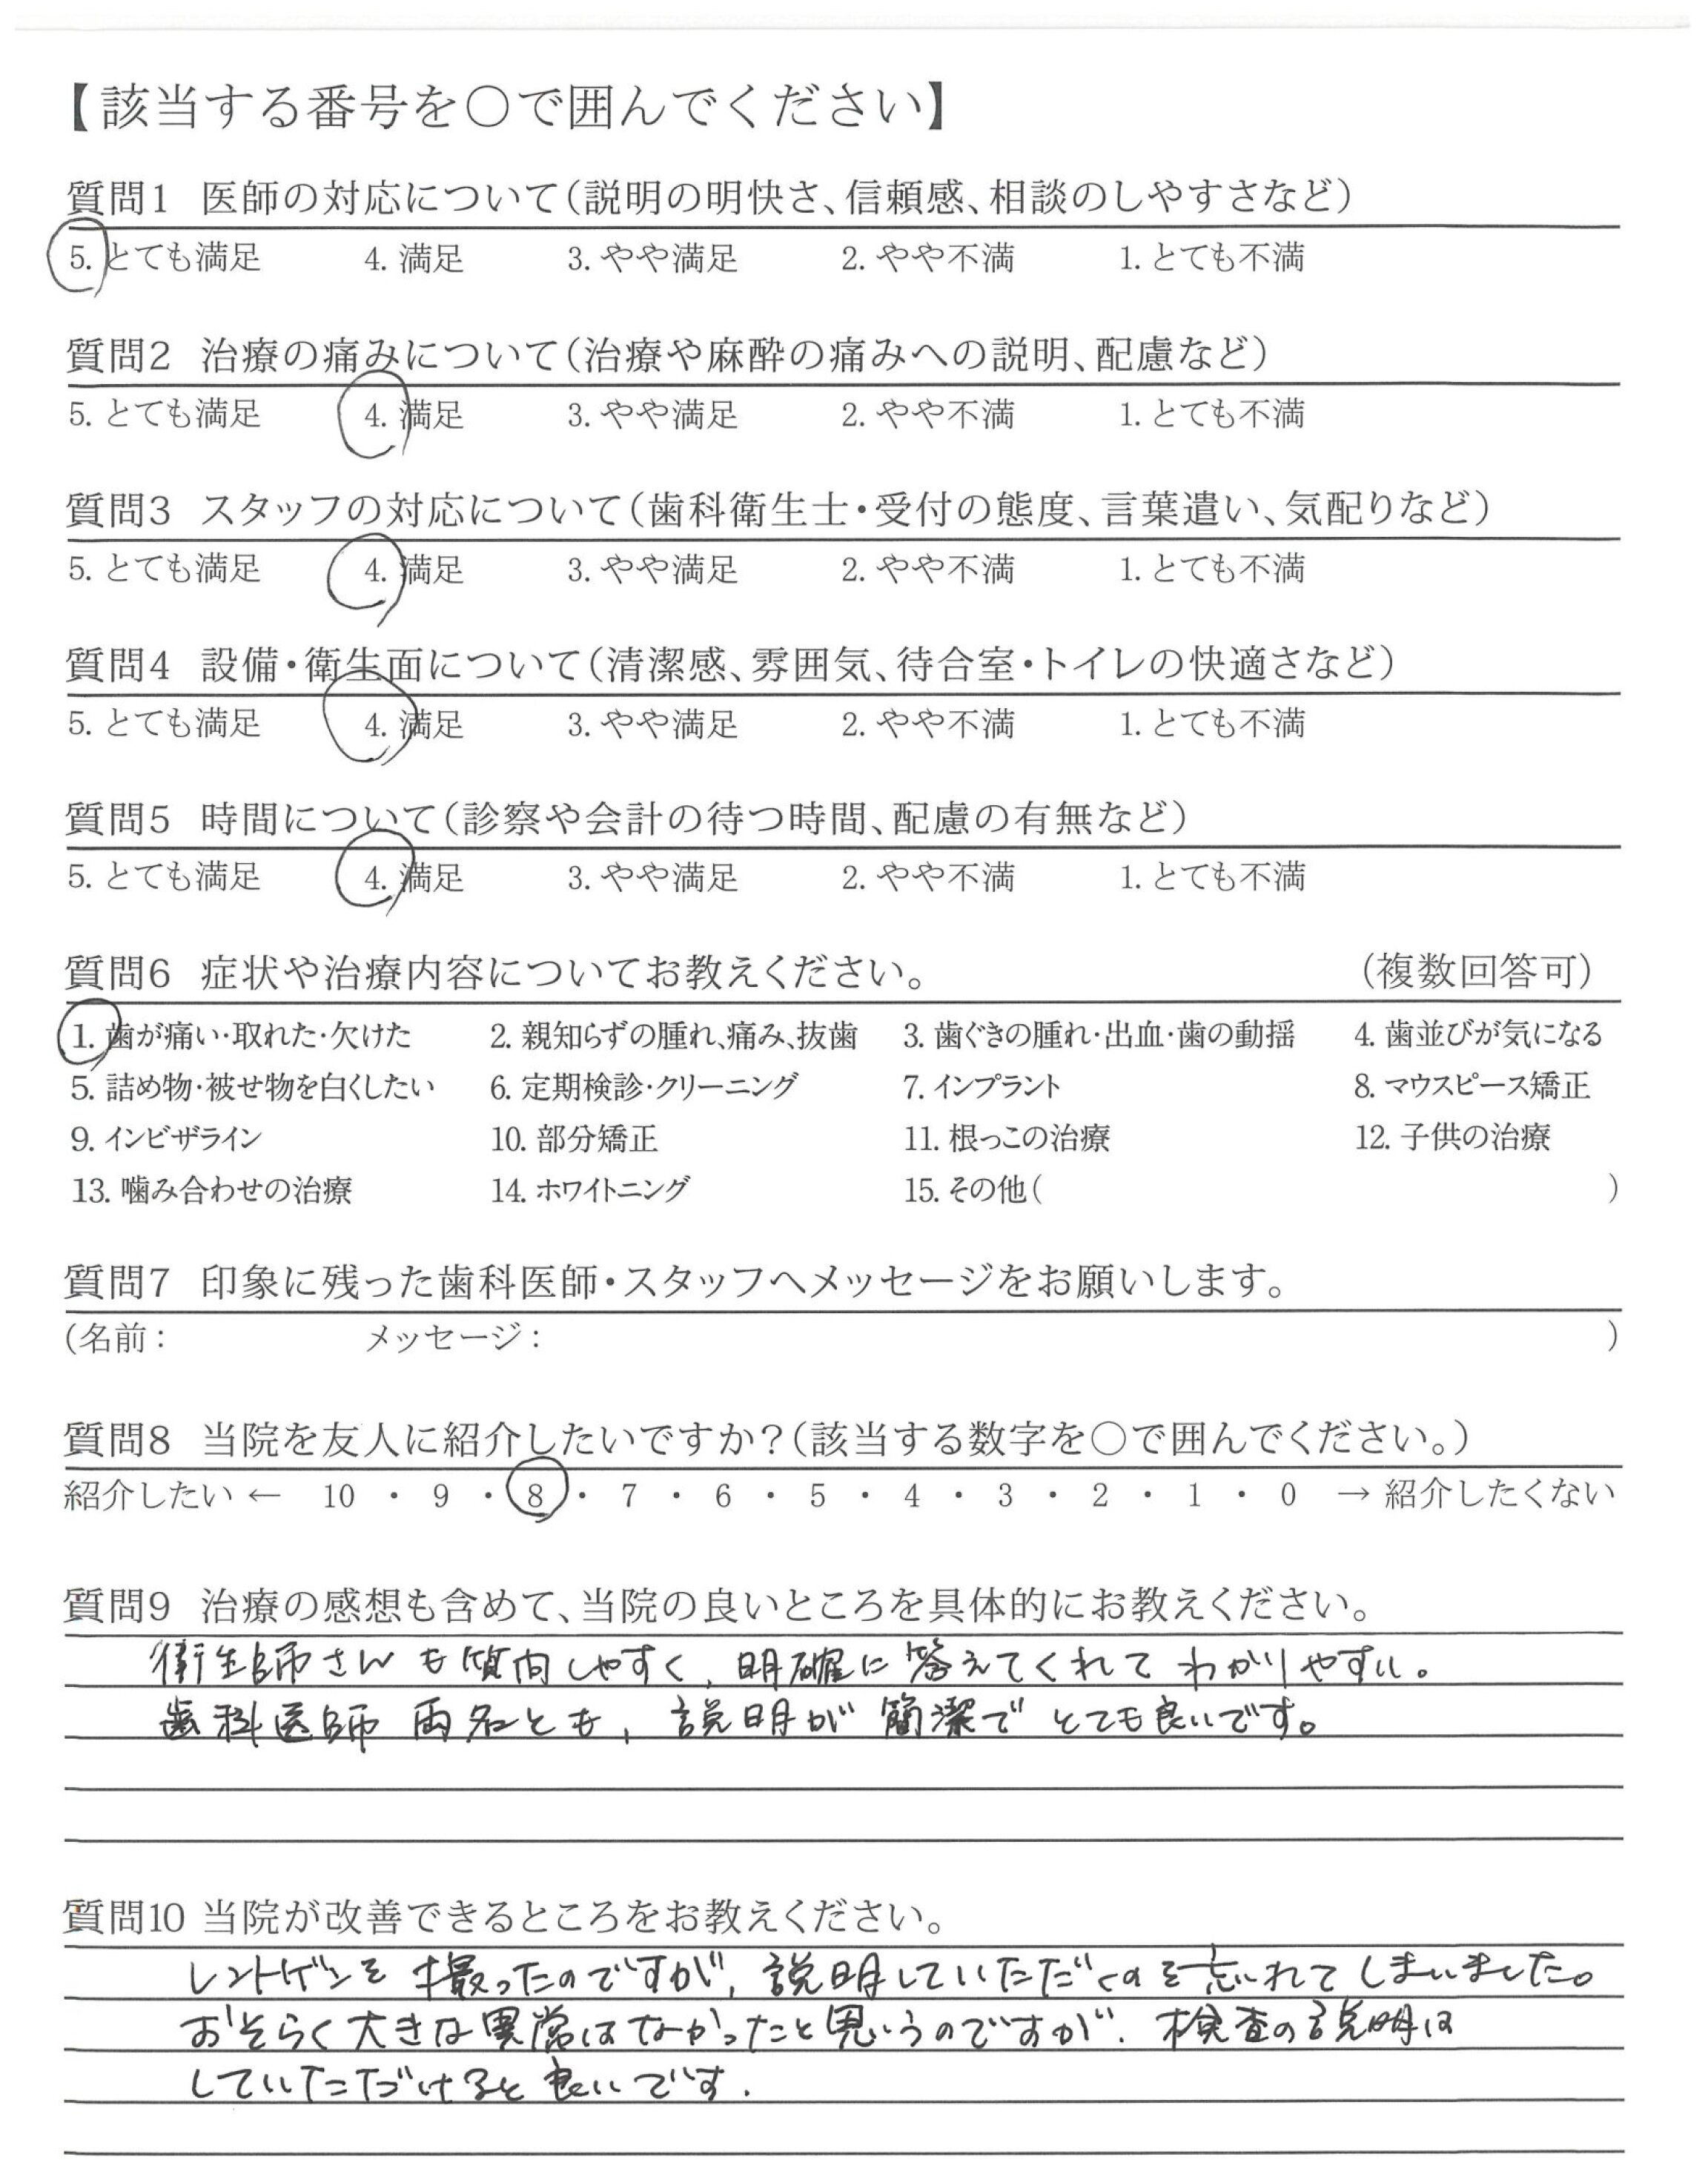 【該当する番号を○で囲んでください】
質問1 医師の対応について(説明の明快さ、信頼感、相談のしやすさなど)
5. とても満足 4. 満足 3. やや満足 2. やや不満 1. とても不満
質問2 治療の痛みについて(治療や麻酔の痛みへの説明、配慮など)
5. とても満足 4. 満足 3. やや満足 2. やや不満 1. とても不満
質問3 スタッフの対応について(歯科衛生士・受付の態度、言葉遣い、気配りなど)
5. とても満足 4. 満足 3. やや満足 2. やや不満 1. とても不満
質問4 設備・衛生面について(清潔感、雰囲気、待合室・トイレの快適さなど)
5. とても満足 4. 満足 3. やや満足 2. やや不満 1. とても不満
質問5 時間について(診察や会計の待つ時間、配慮の有無など)
5. とても満足 4. 満足 3. やや満足 2. やや不満 1. とても不満
質問6 症状や治療内容についてお教えください。 (複数回答可)
1. 歯が痛い・取れた・欠けた 2. 親知らずの腫れ、痛み、抜歯 3. 歯ぐきの腫れ・出血・歯の動揺 4. 歯並びが気になる
5. 詰め物・被せ物を白くしたい 6. 定期検診・クリーニング 7. インプラント 8. マウスピース矯正
9. インビザライン 10. 部分矯正 11. 根っこの治療 12. 子供の治療
13. 噛み合わせの治療 14. ホワイトニング 15. その他( )
質問7 印象に残った歯科医師・スタッフへメッセージをお願いします。
(名前: メッセージ: )
質問8 当院を友人に紹介したいですか?(該当する数字を○で囲んでください。)
紹介したい ← 10 ・ 9 ・ 8 ・ 7 ・ 6 ・ 5 ・ 4 ・ 3 ・ 2 ・ 1 ・ 0 → 紹介したくない
質問9 治療の感想も含めて、当院の良いところを具体的にお教えください。
衛生師さんも質問しやすく、明確に答えてくれてわかりやすい。
歯科医師両名とも、説明が簡潔でとても良いです。
質問10 当院が改善できるところをお教えください。
レントゲンを撮ったのですが、説明していただくのを忘れてしまいました。
おそらく大きな異常はなかったと思うのですが、検査の説明は
していただけると良いです.